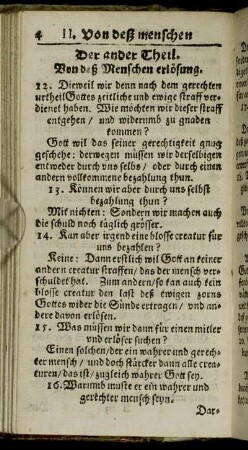 4 II. Von deß menschen
Der ander Theil.
Von deß Menschen erlösung.
12. Dieweil wir denn nach dem gerechten
urtheil Gottes zeitliche und ewige straff ver-
dienet haben. Wie möchten wir dieser straff
entgehen / und widerumb zu gnaden
kommen?
Gott wil das seiner gerechtigkeit gnug
geschehe: derwegen müssen wir derselbigen
entweder durch uns selbs / oder durch einen
andern vollkommene bezahlung thun.
13. Können wir aber durch uns selbst
bezahlung thun?
Mit nichten: Sondern wir machen auch
die schuld noch täglich grösser.
14. Kan aber irgend eine blosse creatur für
uns bezahlen?
Keine: Dann erstlich wil Gott an keiner
andern creatur straffen / das der mensch ver-
schuldet hat. Zum andern / so kan auch kein
blosse creatur den last deß ewigen zorns
Gottes wider die Sünde ertragen / und an-
dere davon erlösen.
15. Was müssen wir dann für einen mitler
und erlöser suchen?
Einen solchen / der ein wahrer und gerech-
ter mensch / und doch stärcker dann alle creatu-
ren / das ist / zugleich wahrer Gott sey.
16. Warumb muste er ein wahrer und
gerechter mensch seyn.
Dar-